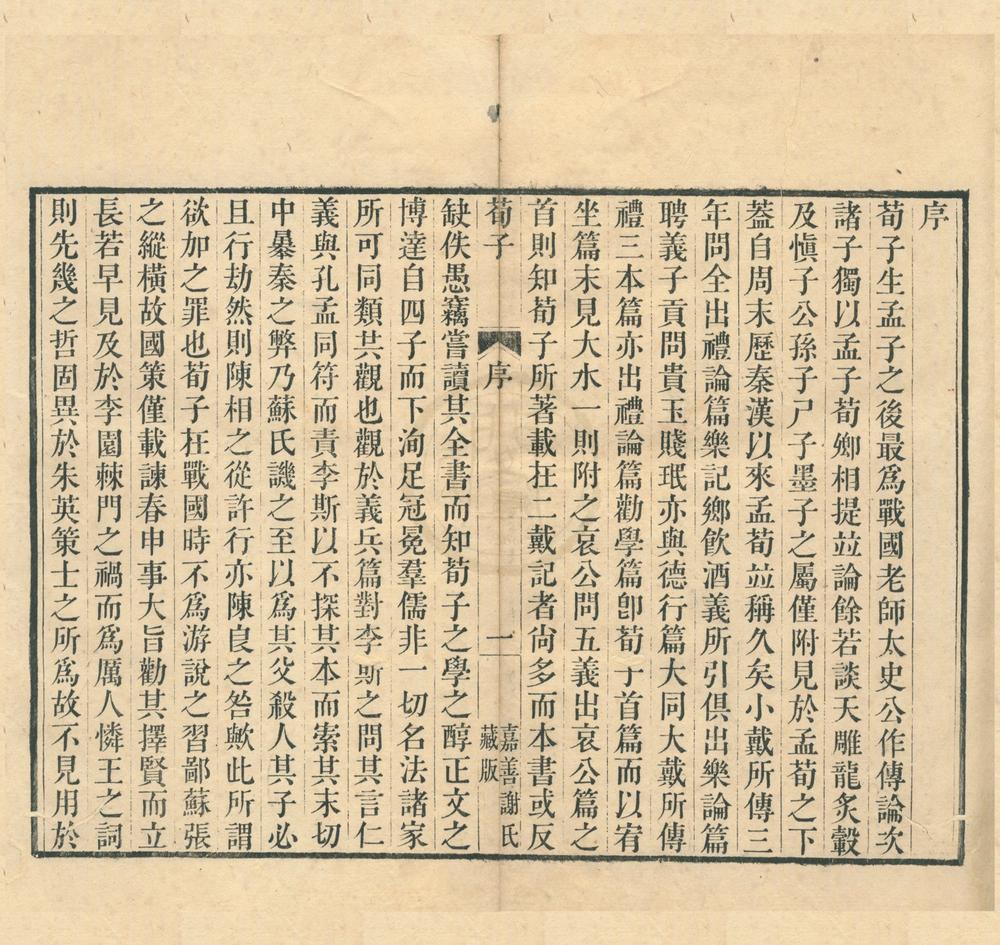 序
荀子生孟子之後最爲戰國老師太史公作傳論次
諸子獨以孟子荀卿相提竝論餘若談天雕龍炙轂
及愼子公孫子尸子墨子之屬僅附見於孟荀之下
葢自周末歷秦漢以來孟荀竝稱久矣小戴所傳三
年問全出禮論篇樂記鄉飲酒義所引俱出樂論篇
聘義子貢問貴玉賤珉亦與德行篇大同大戴所傳
禮三本篇亦出禮論篇勸學篇卽荀子首篇而以宥
坐篇末見大水一則附之哀公問五義出哀公篇之
首則知荀子所著載在二戴記者尙多而本書或反
荀子
序
一
嘉善謝氏
藏版
缺佚愚竊嘗讀其全書而知荀子之學之醇正文之
博達自四子而下洵足冠冕羣儒非一切名法諸家
所可同類共觀也觀於義兵篇對李斯之問其言仁
義與孔孟同符而責李斯以不探其本而索其末切
中暴秦之弊乃蘇氏譏之至以爲其父殺人其子必
且行劫然則陳相之從許行亦陳良之咎歟此所謂
欲加之罪也荀子在戰國時不爲游說之習鄙蘇張
之縱橫故國策僅載諫春申事大旨勸其擇賢而立
長若早見及於李園棘門之禍而爲厲人憐王之詞
則先幾之哲固異於朱英策士之所爲故不見用於